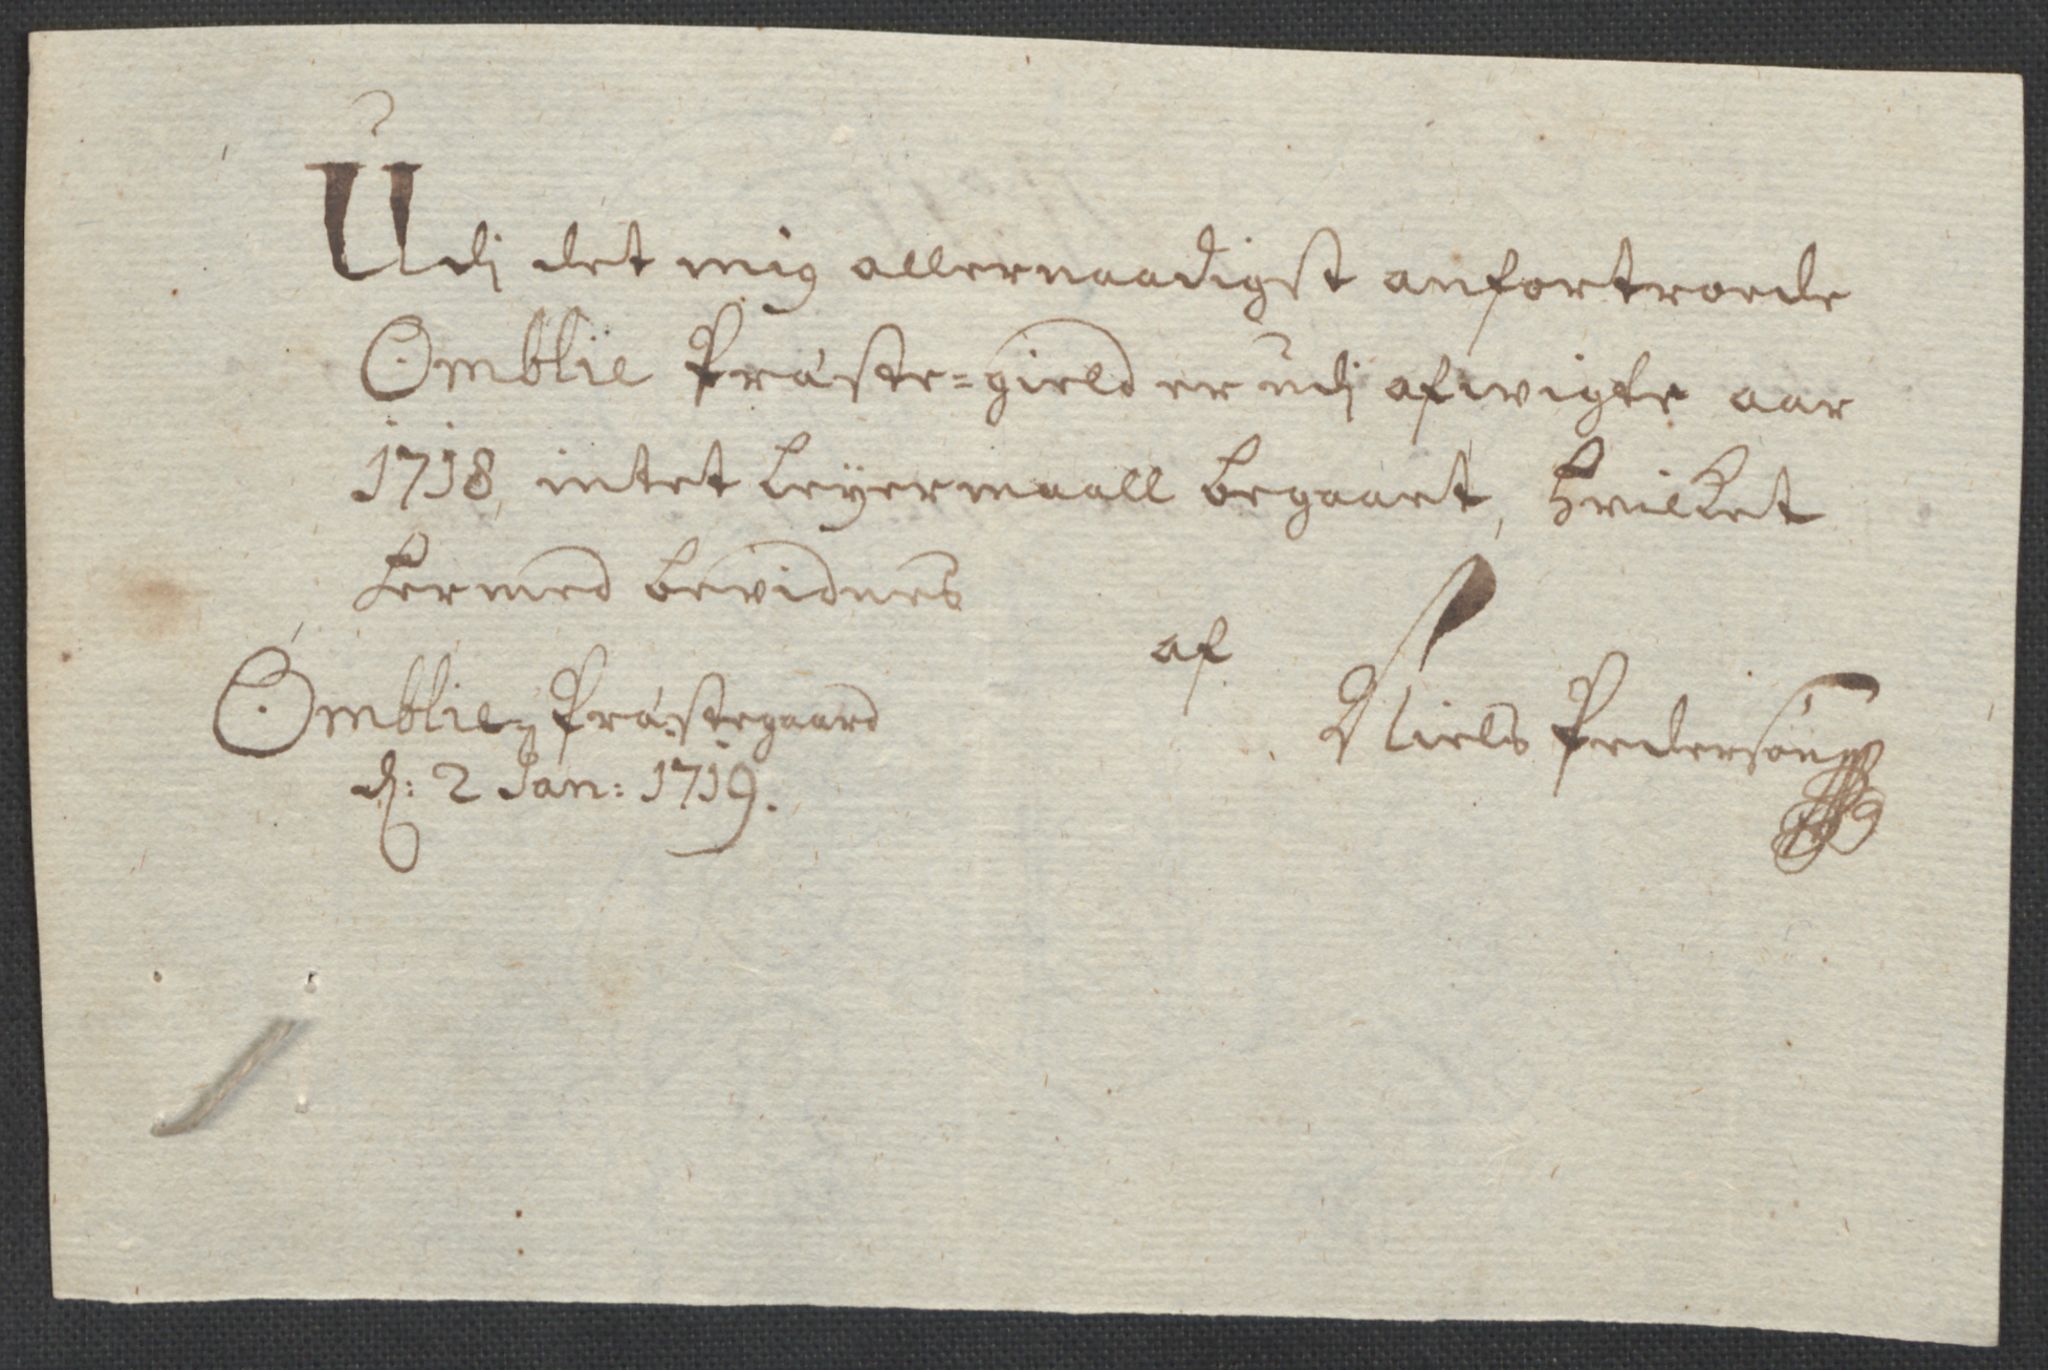 Udj det mig allernaadigst anfortroede
Omblie Præste=gield er udj afwigte aar
1718, intet Leyermaall begaaet, hvilket
hermed bevidnes
af
Omblie Præstegaard
Niels Pedersøn
d: 2 Jan: 1719.